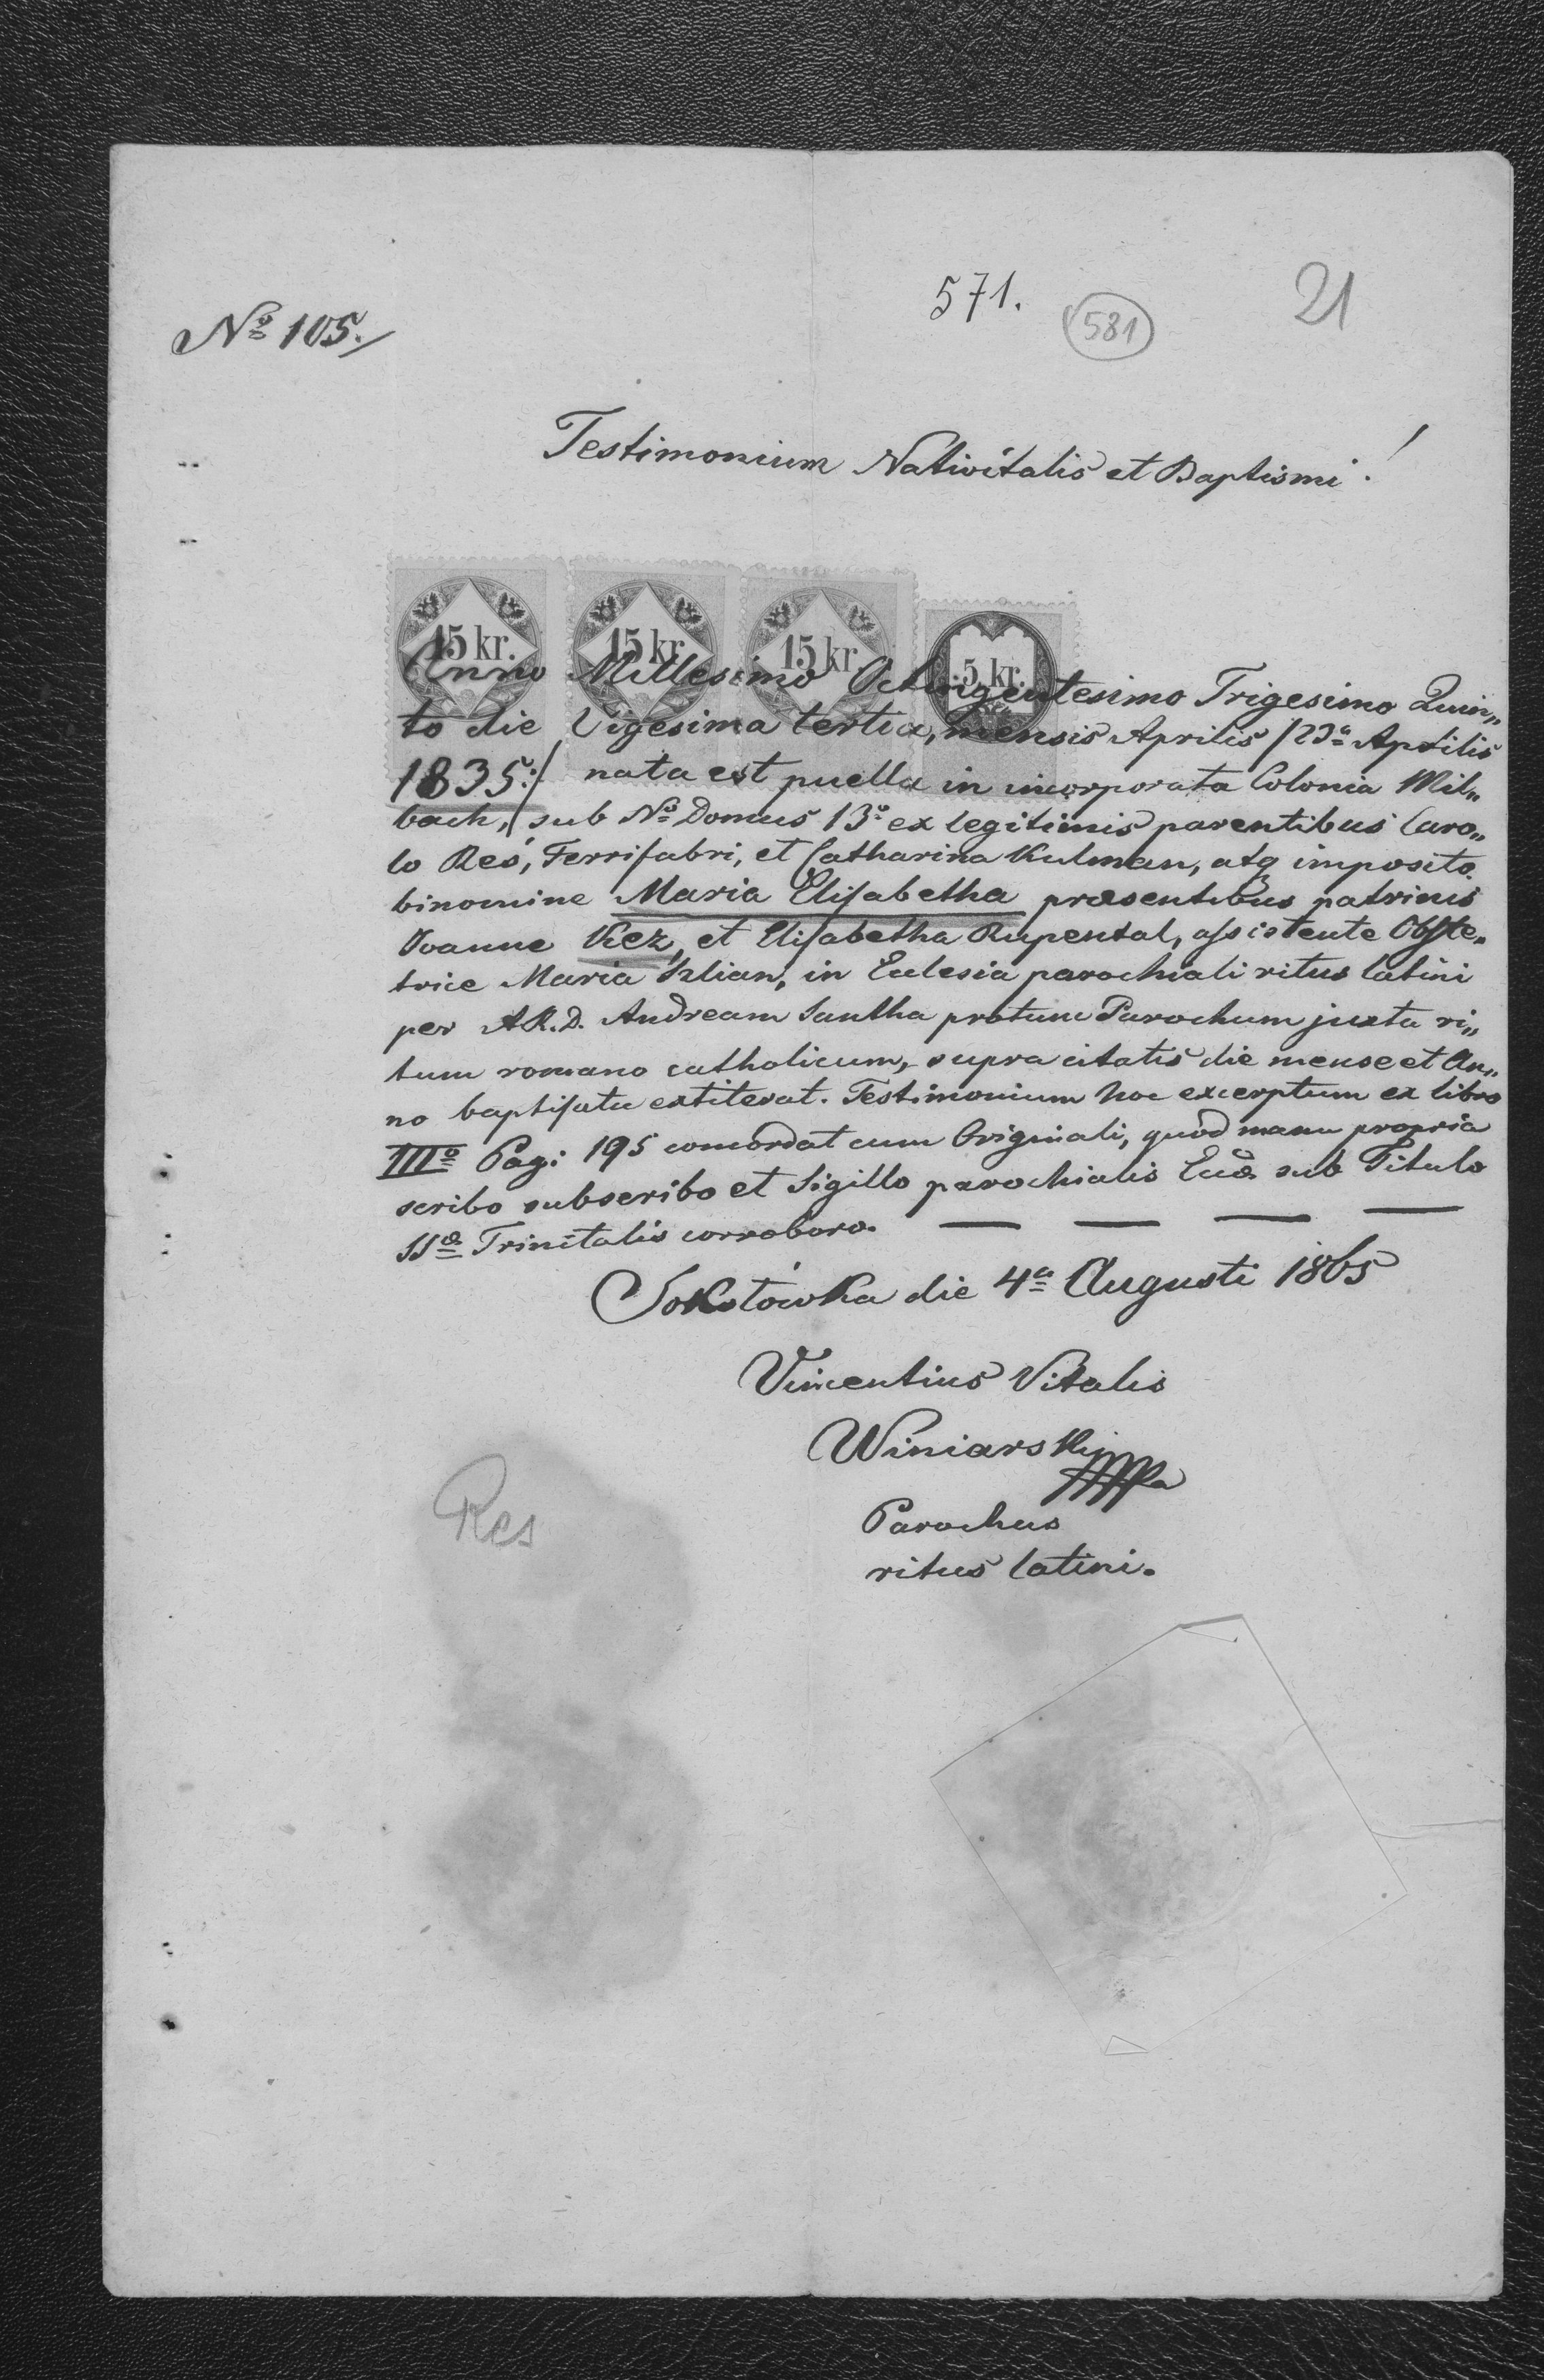 571.
581
21
Nº 105.
Testimonium Nativitatis et Baptismi!
15 kr. 15 kr. 15 kr. 5 kr.
Anno Millesimo Octingentesimo Trigesimo Quin„
to die Vigesima tertia, mensis Aprilis /23ª Aprilis
1835:/ nata est puella in incorporata Colonia Mil„
bach, sub Nº Domus 13º ex legitimis parentibus Caro„
lo Res, Ferrifabri, et Catharina Kulman, atq imposito
binomine Maria Elisabetha praesentibus patrinis
Joanne Kez, et Elisabetha Rupental, assistente Obste„
trice Maria Iulian, in Eclesia parochiali ritus latini
per A.R.D. Andream Santha protunc Parochum juxta ri„
tum romano catholicum, supra citatis die mense et An„
no baptisata extiterat. Testimonium hoc excerptum ex libro
IIIº Pag: 195 concordat cum Originali, quòd manu propria
scribo subscribo et Sigillo parochialis Eccl. sub Titulo
SSae Trinitatis corroboro.
Sokołówka die 4ª Augusti 1865
Vincentius Vitalis
Winiarski
Parochus
ritus latini.
Res